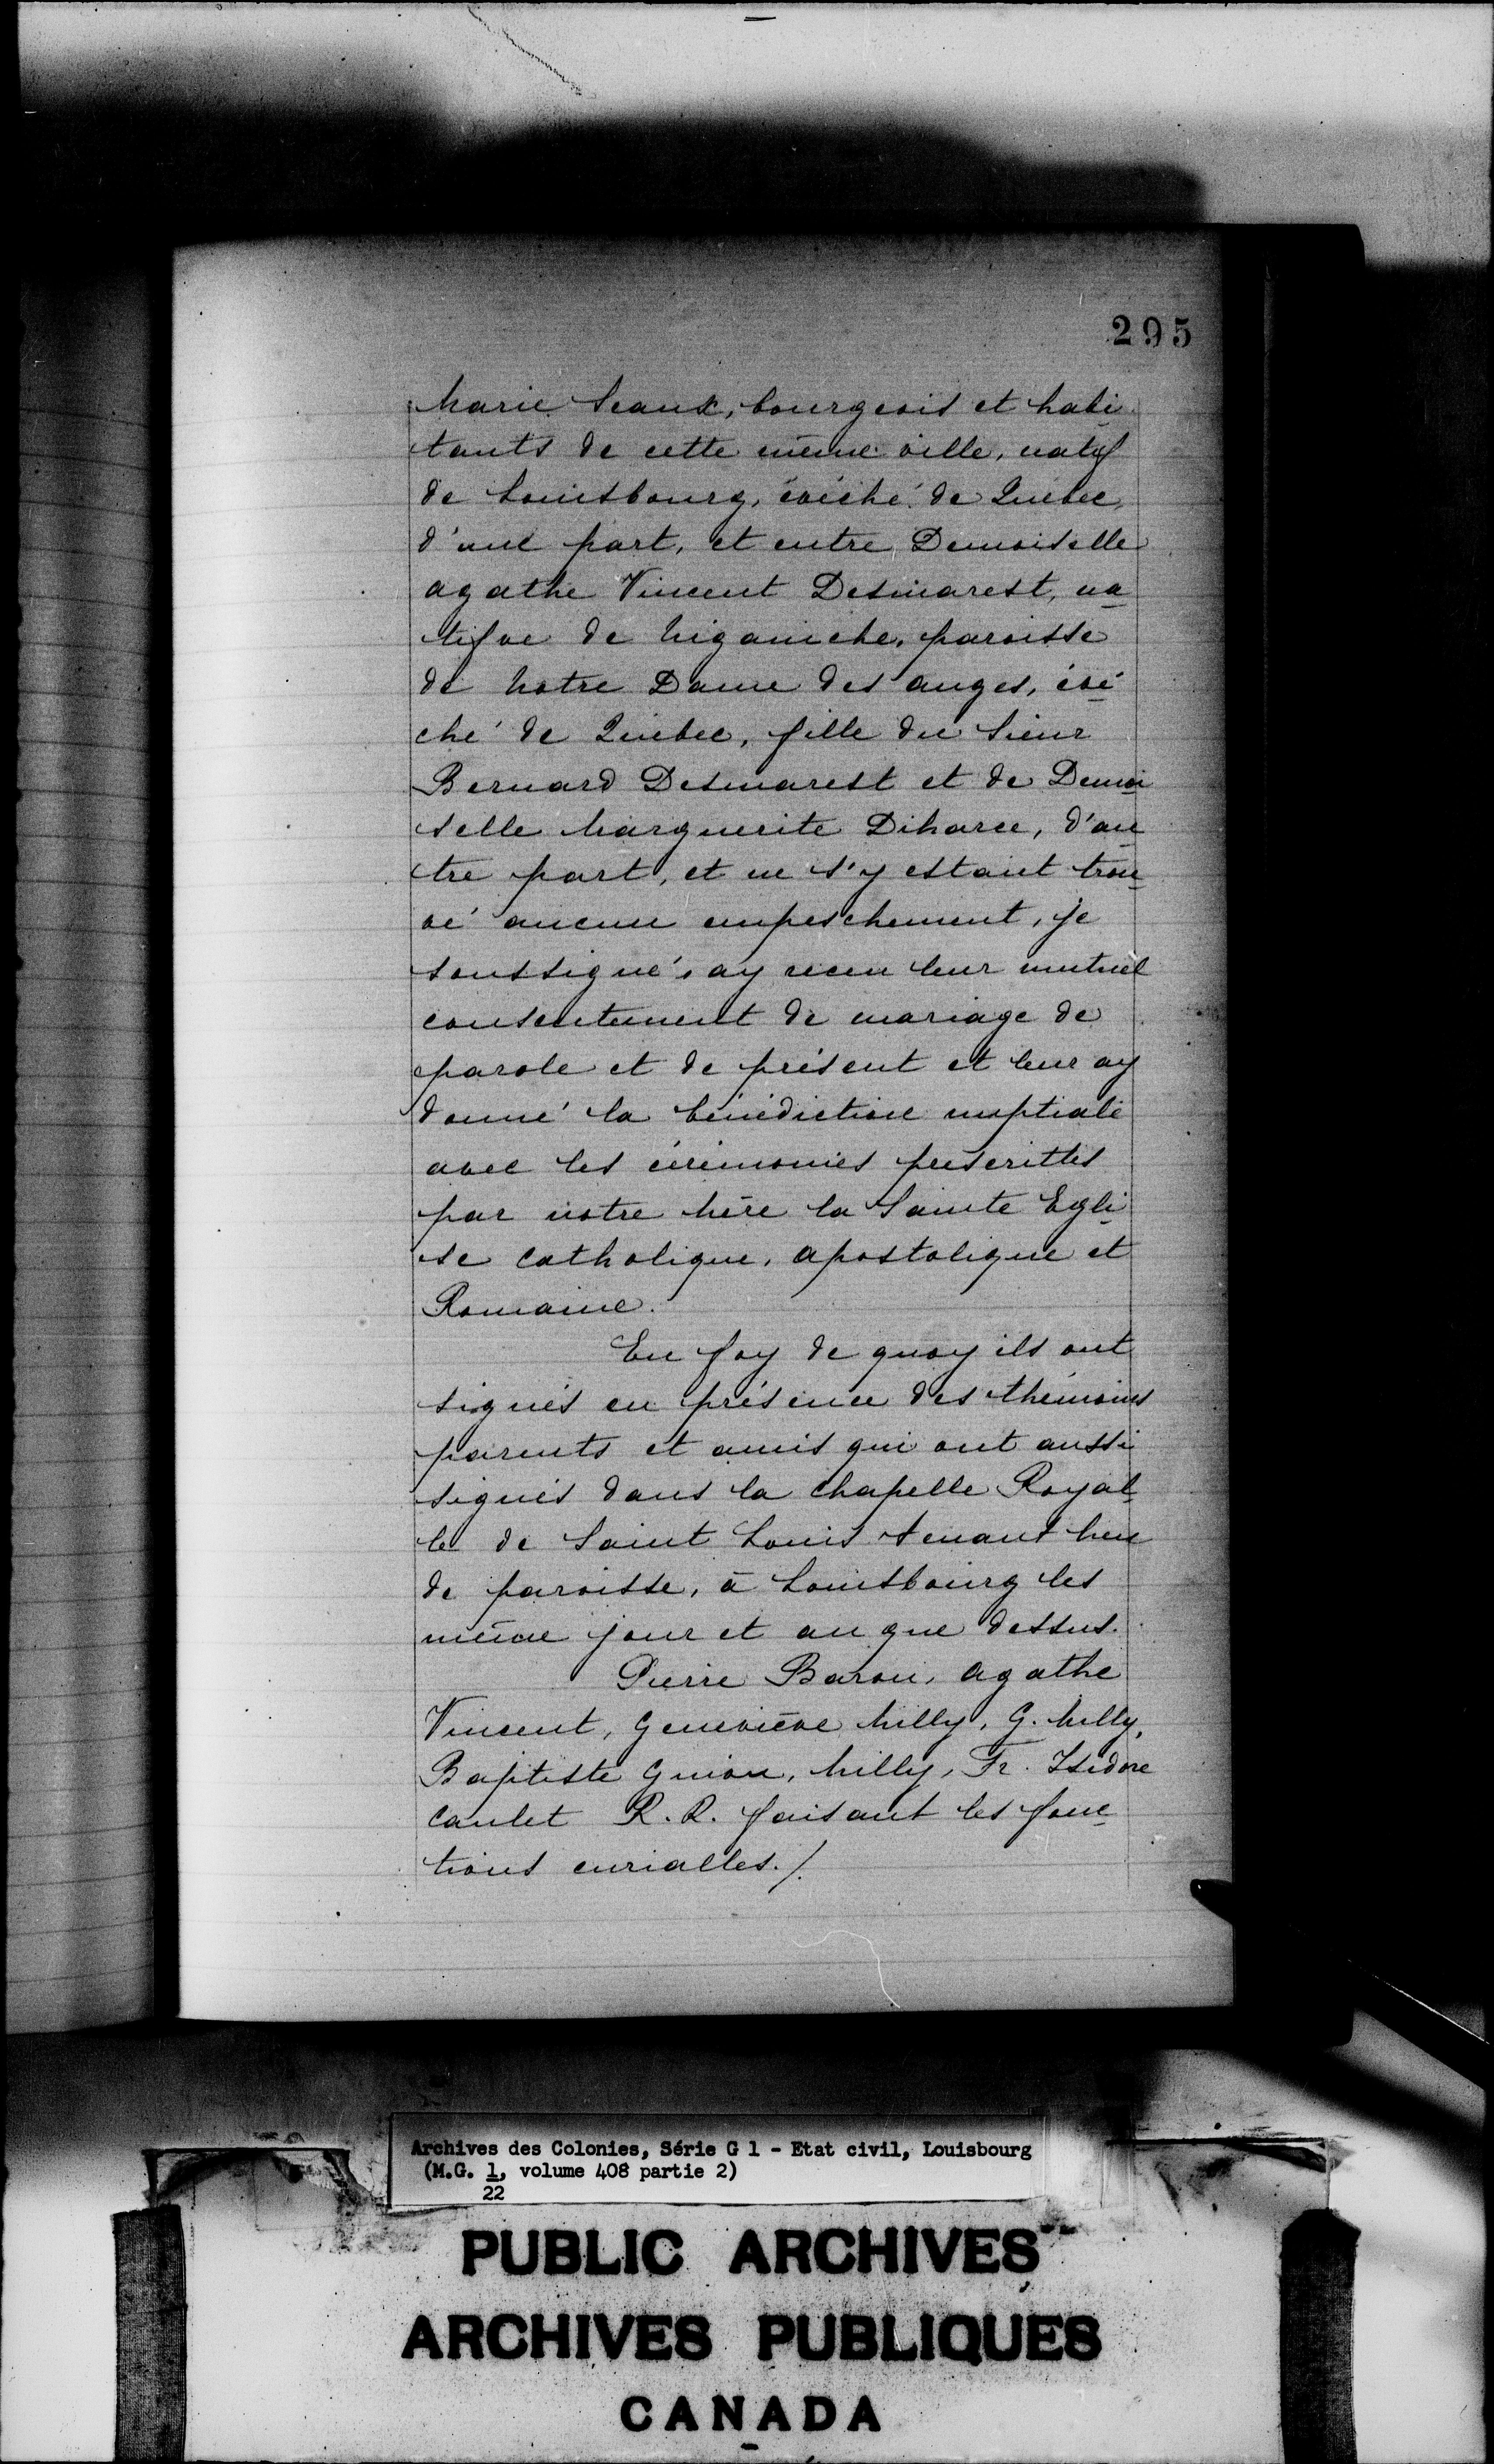 295
Marie Seaux, bourgeois et habi
tants de cette même ville, natif
de Louisbourg, évêché de Québec,
d'une part, et entre Demoiselle
Agathe Vincent Desmarest, na
tifve de Niganiche, paroisse
de Notre Dame des anges, évé
ché de Québec, fille du Sieur
Bernard Desmarest et de Demoi
selle Marguerite Diharce, d'au
tre part, et ne s'y estant trou
vé aucun empeschement, je
soussigné, ay receu leur mutuel
consentement de mariage de
parole et de présent et leur ay
donné la bénédiction nuptiale
avec les cérémonies prescrittes
par notre Mère la Sainte Egli
se Catholique, Apostolique et
Romaine.
En foy de quoy ils ont
signés en présence des thémoins
parents et amis qui ont aussi
signés dans la Chapelle Royal
le de Saint Louis tenant lieu
de paroisse, à Louisbourg les
même jour et an que dessus.
Pierre Baron, Agathe
Vincent, Geneviève Milly, G. Milly,
Baptiste Guion, Milly, Fr. Isidore
Caulet R. R. faisant les fonc
tions curialles./.
Archives des Colonies, Série G 1 - Etat civil, Louisbourg
(M.G. 1, volume 408 partie 2)
22
PUBLIC ARCHIVES
ARCHIVES PUBLIQUES
CANADA